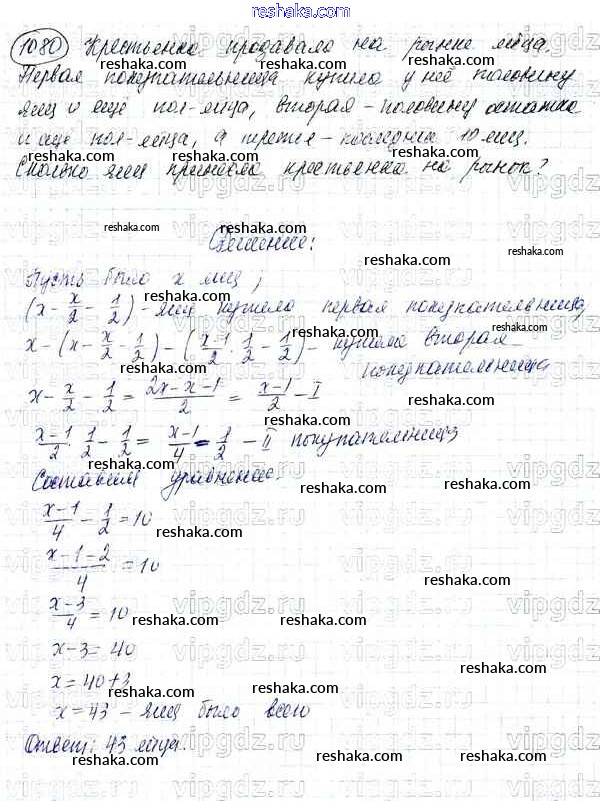 reshaka.com
1080 Крестьянка продавала на рынке яйца.
Первая покупательница купила у неё половину
яиц и ещё пол-яйца, вторая – половину остатка
и ещё пол-яйца, а третья – последние 10 яиц.
Сколько яиц принесла крестьянка на рынок?
Решение:
Пусть было x яиц;
(x - x/2 - 1/2) - яиц купила первая покупательница,
x - (x - x/2 - 1/2) - (x-1/2 · 1/2 - 1/2) - купила вторая
покупательница
x - x/2 - 1/2 = 2x-x-1/2 = x-1/2 - I
x-1/2 · 1/2 - 1/2 = x-1/4 - 1/2 - II покупательница
Составим уравнение.
x-1/4 - 1/2 = 10
x-1-2/4 = 10
x-3/4 = 10
x-3 = 40
x = 40+3
x = 43 - яиц было всего
Ответ: 43 яйца.